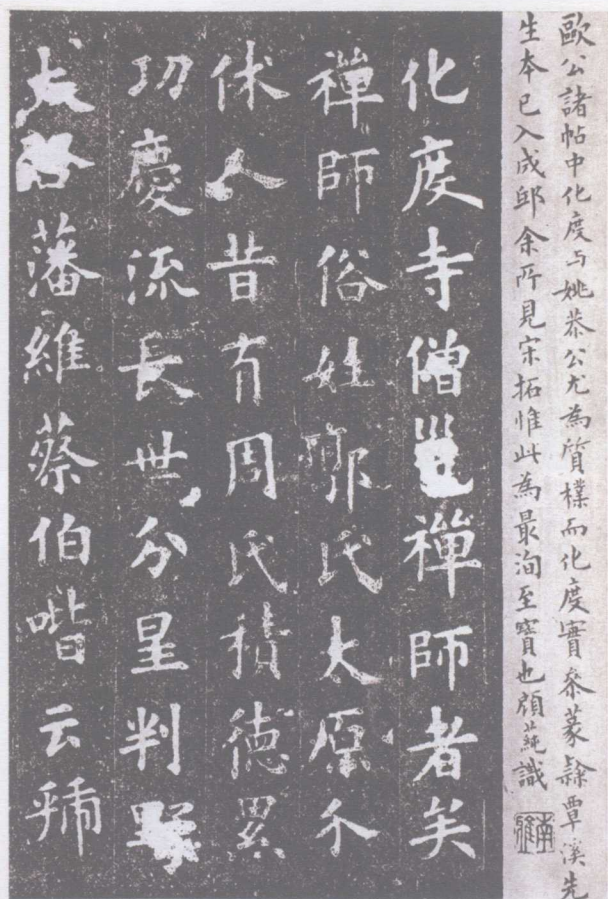 歐公諸帖中化度与姚恭公尤為質樸而化度實叅篆隸覃溪先
生本已入成邸余所見宋拓惟此為最洵至寶也顧蒓識
南雅
化度寺僧邕禪師者矣
禪師俗姓郭氏太原介
休人昔有周氏積德累
功慶流長世分星判野
大啓藩維蔡伯喈云虢